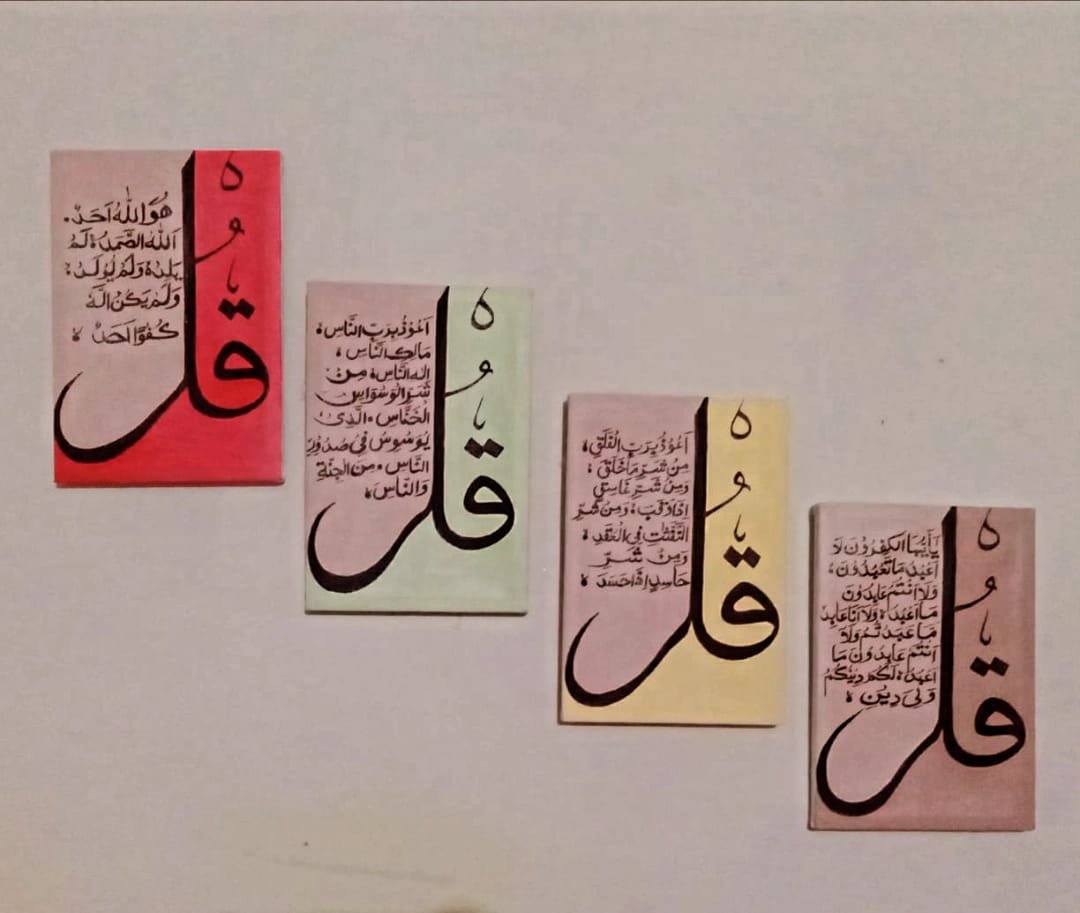 قُل
هُوَ اللّٰهُ اَحَدْ۔
اَللهُ الصَّمَدُ ۚ لَمْ
يَلِدْ ہ وَلَمْ يُولَدْ ۚ
وَلَمْ يَكُنْ لَّهٗ
كُفُوًا اَحَدْ ہ
قُل
اَعُوْذُ بِرَبِّ النَّاسِ ہ
مَالِكِ النَّاسِ ہ
اِلٰهِ النَّاسِ ہ مِنْ
شَرِّ الْوَسْوَاسِ
الْخَنَّاسِ ہ الَّذِىْ
يُوَسْوِسُ فِى صُدُوْرِ
النَّاسِ ہ مِنَ الْجِنَّةِ
وَالنَّاسِ ہ
قُل
اَعُوْذُ بِرَبِّ الْفَلَقِ ہ
مِنْ شَرِّ مَا خَلَقَ ہ
وَمِنْ شَرِّ غَاسِقٍ
اِذَا وَقَبَ ہ وَمِنْ شَرِّ
النَّفّٰثٰتِ فِى الْعُقَدِ ہ
وَمِنْ شَرِّ
حَاسِدٍ اِذَا حَسَدَ ہ
قُل
يٰٓاَيُّهَا الْكٰفِرُوْنَ لَا
اَعْبُدُ مَا تَعْبُدُوْنَ ہ
وَلَا اَنْتُمْ عَابِدُوْنَ
مَا اَعْبُدُ ہ وَلَا اَنَا عَابِدٌ
مَا عَبَدْتُّمْ وَلَا
اَنْتُمْ عَابِدُوْنَ مَا
اَعْبُدُ ہ لَكُمْ دِيْنُكُمْ
وَلِىَ دِيْنِ ہ